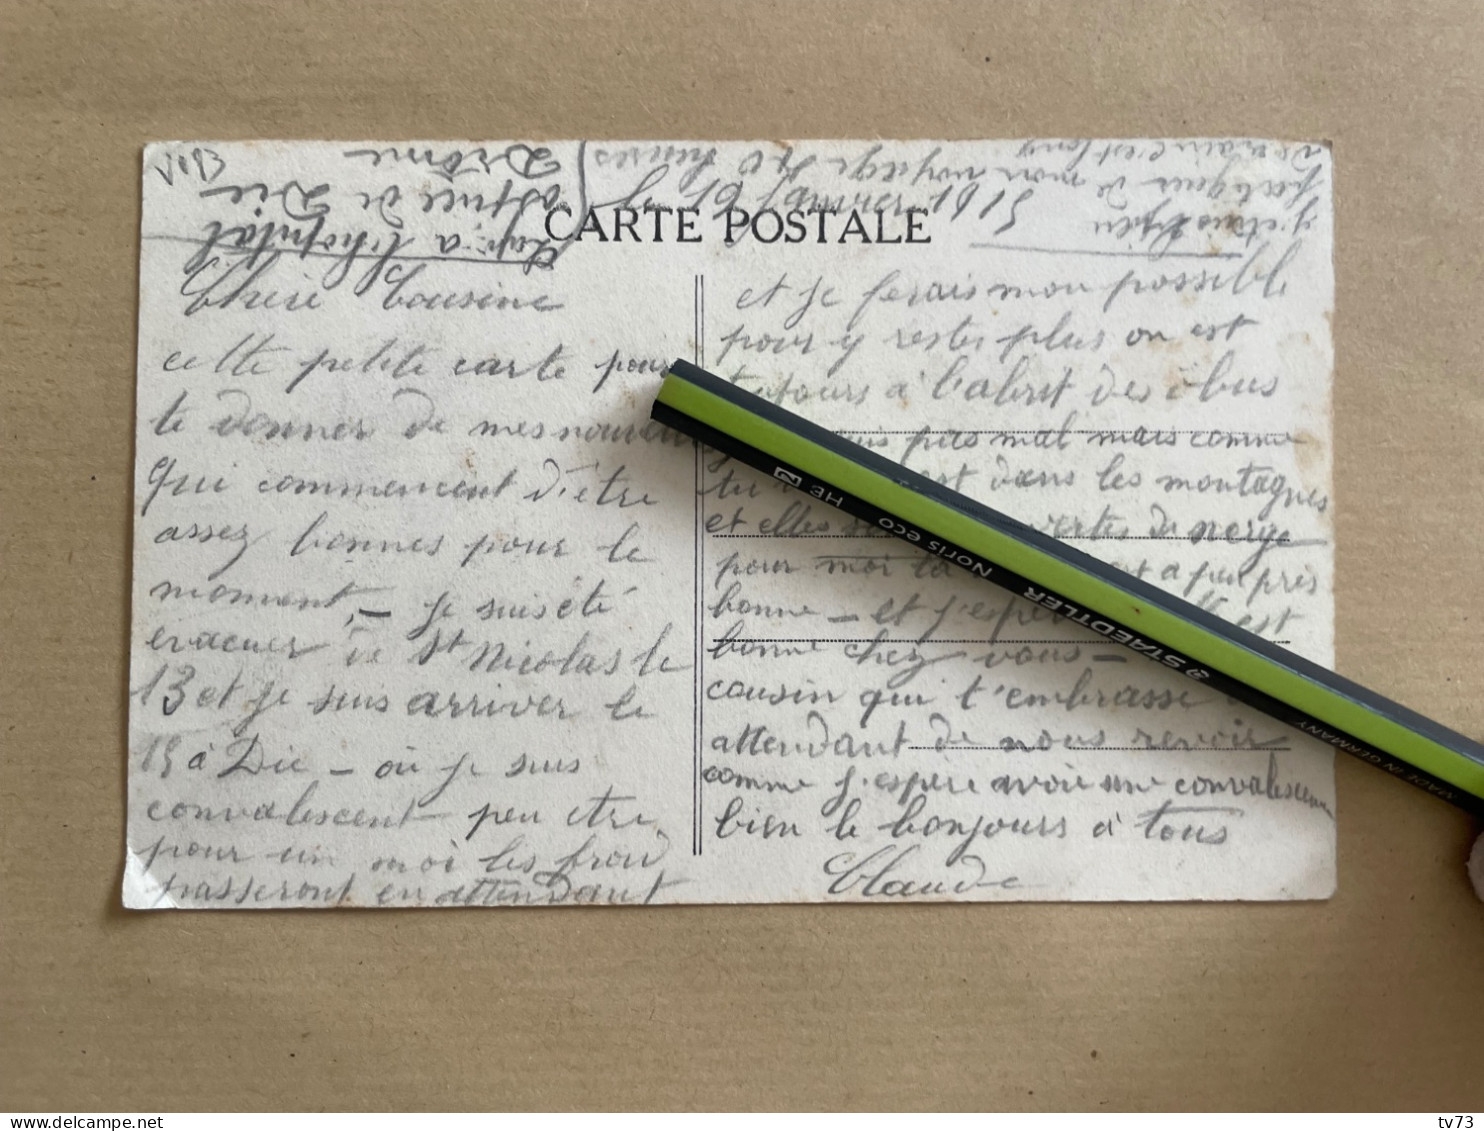 CARTE POSTALE
Chère Cousine
cette petite carte pour
te donner de mes nouvelles
qui commencent d'être
assez bonnes pour le
moment, – je suis été
évacuer de St Nicolas le
13 et je suis arriver le
15 à Die – où je suis
convalescent peu etre
pour un moi les froid
passeront en attendant
et je ferais mon possible
pour y rester plus on est
toujours à l'abrit des obus
suis pas mal mais comme
tu est dans les montagnes
et elles vertes de neige
pour moi la a peu près
bonne – et j'espère est
bonne chez vous –
cousin qui t'embrasse
attendant de nous revoir
comme j'espère avoir une convalescence
bien le bonjours à tous
Claude
à l'hopital
de Die
Drôme
fatiguer de mon voyage 40 heures
c'est long
STAEDTLER Noris eco HB 2
MADE IN GERMANY
tv73